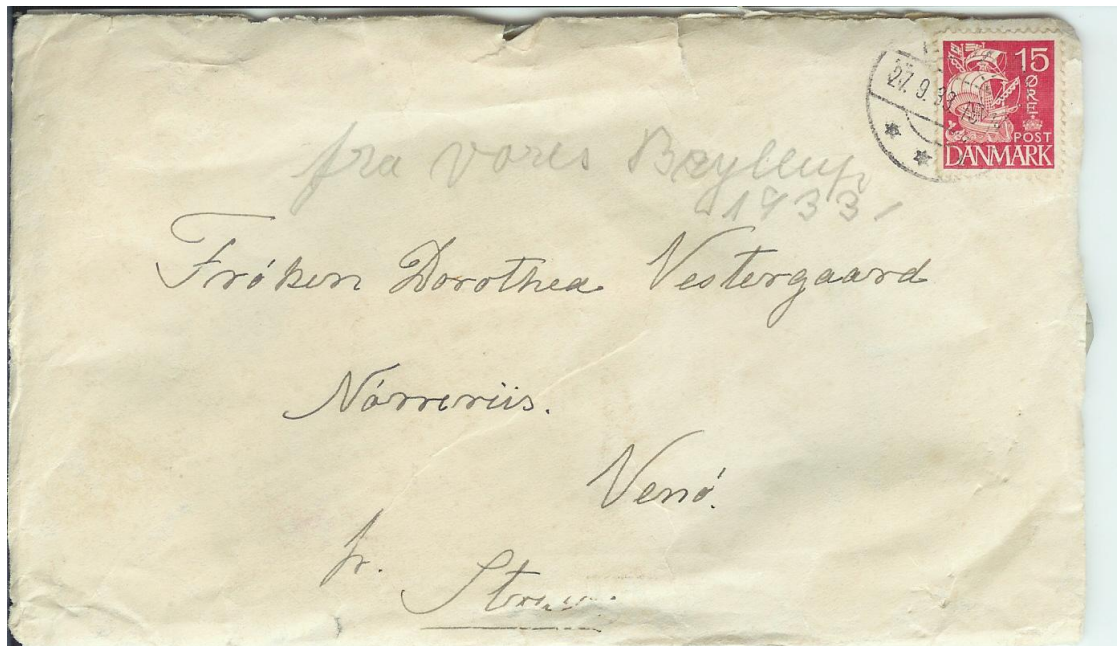 15
ØRE
POST
DANMARK
27.9.33
fra vores Bryllup
1933
Frøken Dorothea Vestergaard
Nørreriis.
Venø.
pr. Struer